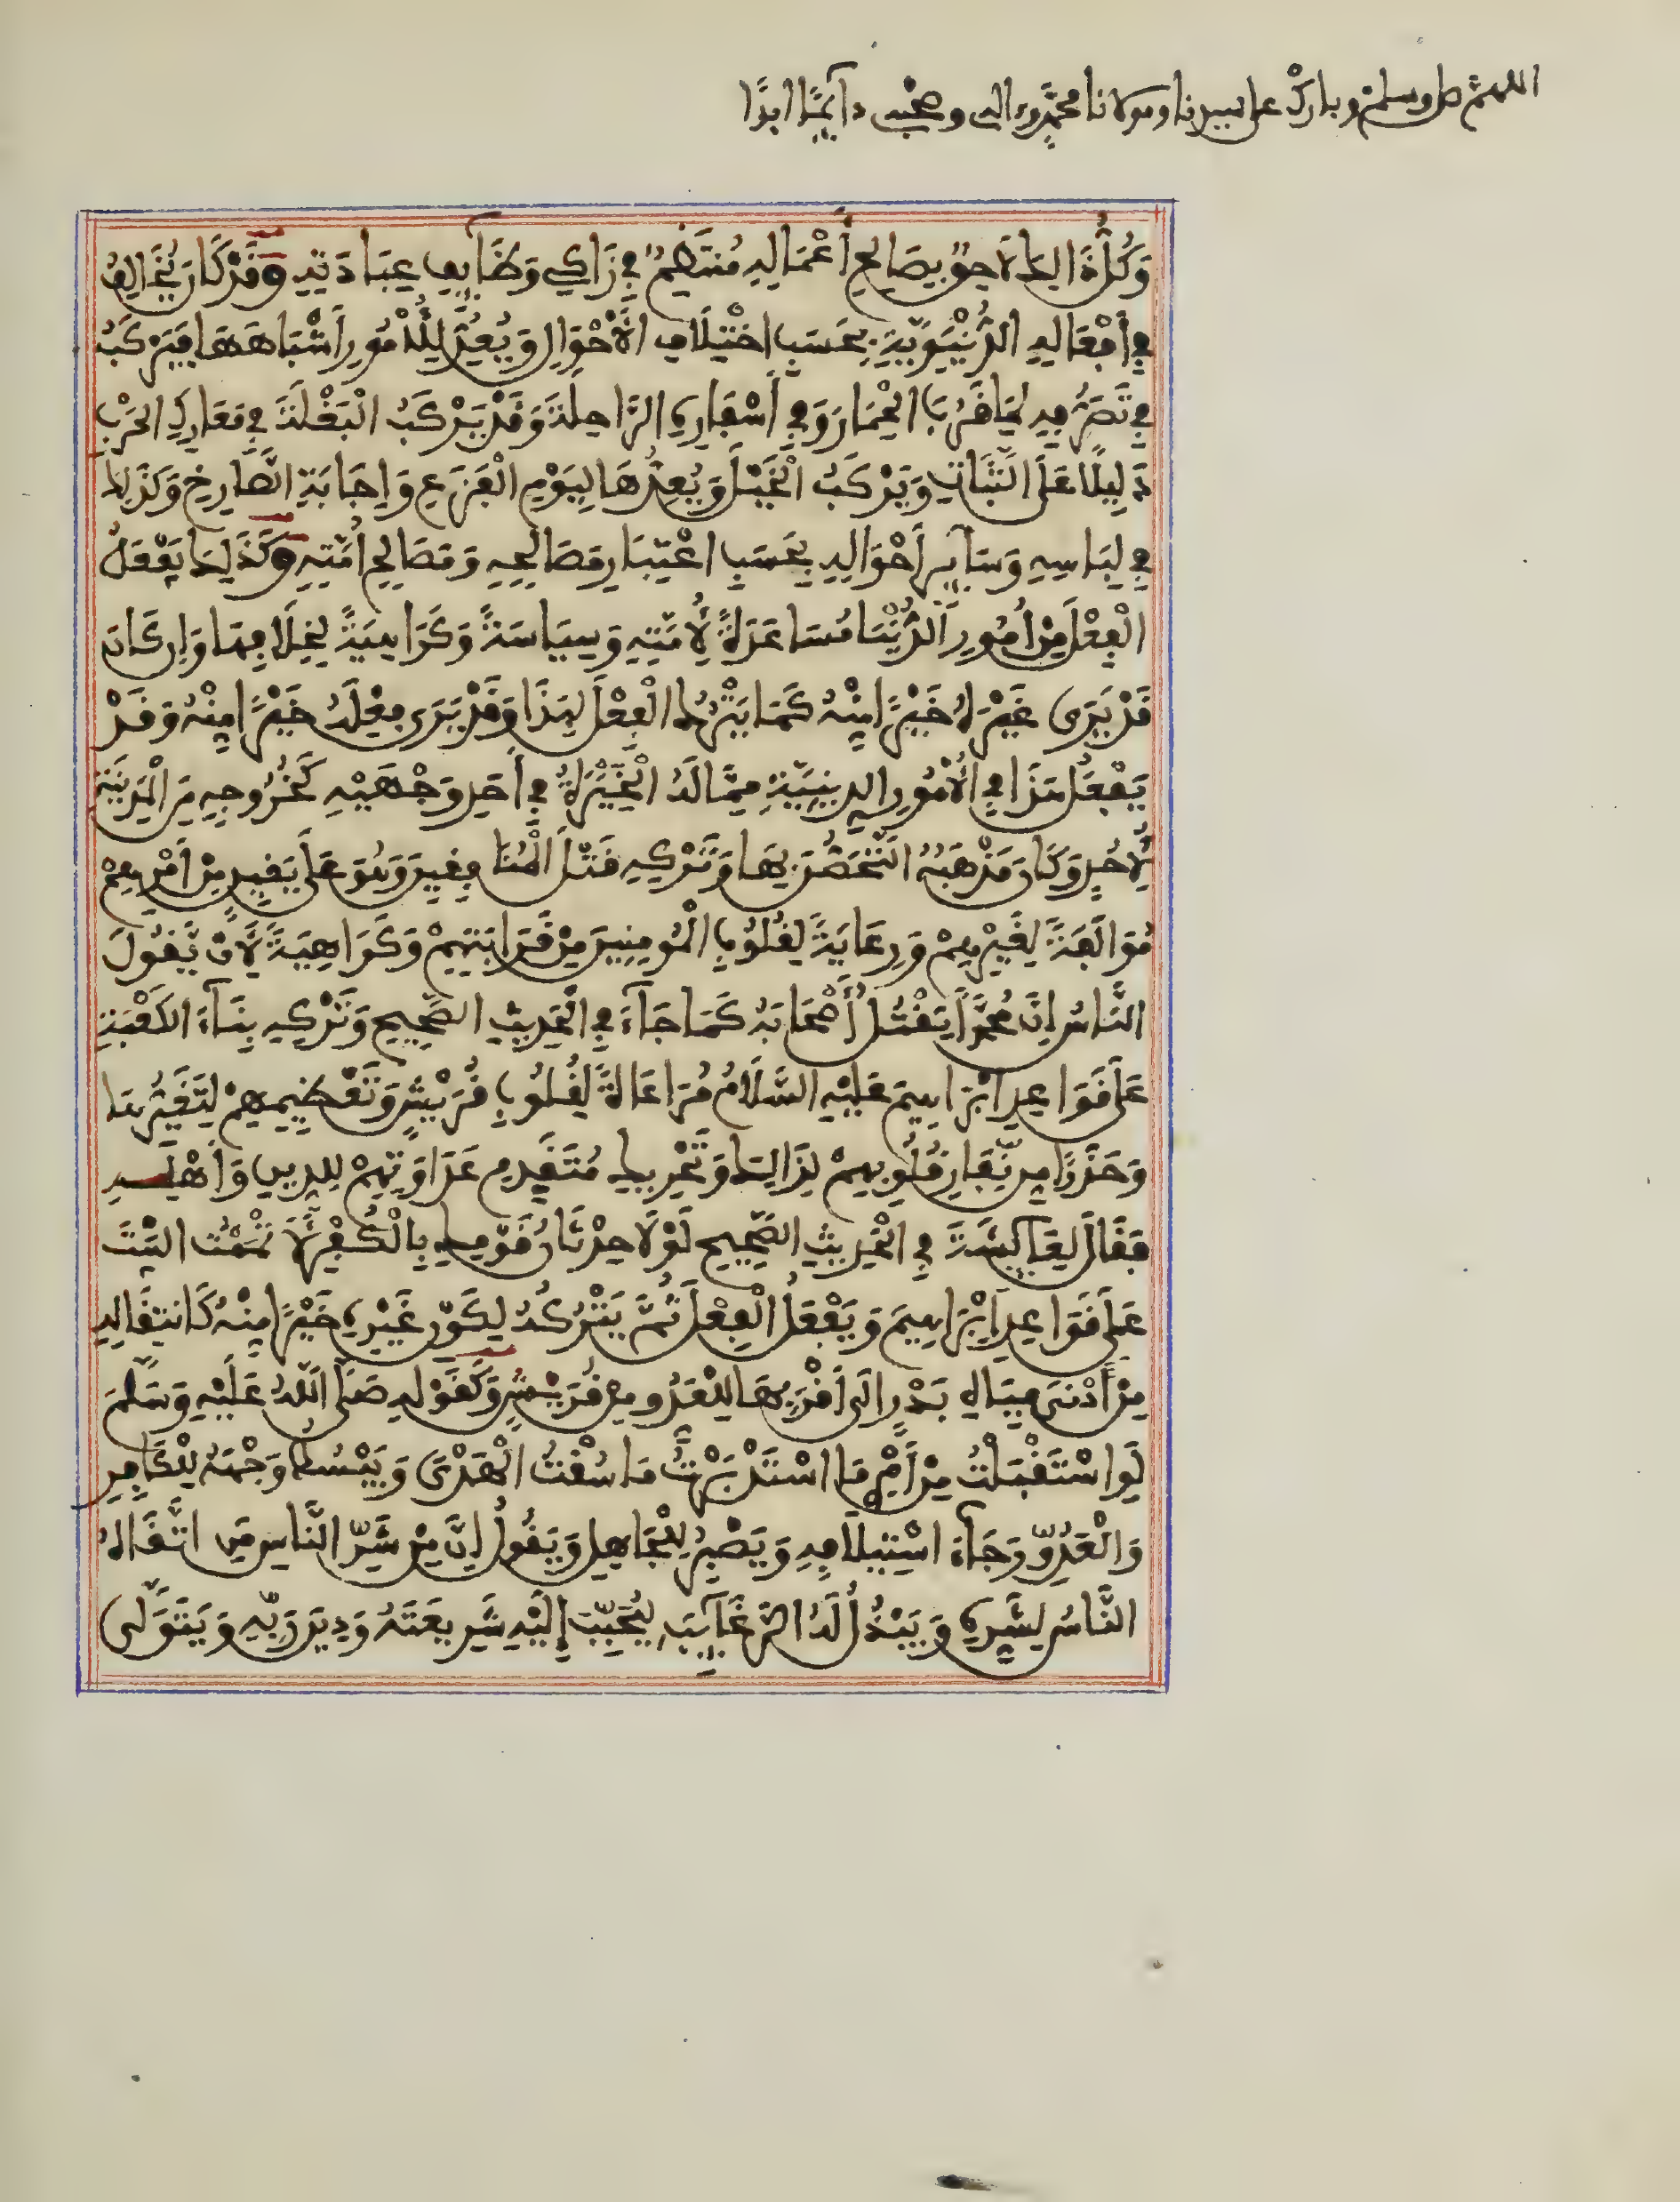 اللهم صل وسلم وبارك على سيدنا ومولانا محمد وءاله وصحبه دآئما ابدا
وَكُلُّ ذَالِكَ لَاحِقٌ بِصَالِحِ أَعْمَالِهِ مُنتَظِمٌ فِي زَاكِي وَظَآئِفِ عِبَادَتِهِ وَقَدْ كَانَ يُخَالِفُ
فِي أَفْعَالِهِ الدُّنْيَوِيَّةِ بِحَسَبِ اخْتِلَافِ الْأَحْوَالِ وَيُعِدُّ لِلْأُمُورِ أَشْبَاهَهَا فَيَرْكَبُ
فِي تَصَرُّفِهِ لِمَا قَرُبَ الْحِمَارَ وَفِي أَسْفَارِهِ الرَّاحِلَةَ وَقَدْ يَرْكَبُ الْبَغْلَةَ فِي مَعَارِكِ الْحَرْبِ
دَلِيلًا عَلَى الثَّبَاتِ وَيَرْكَبُ الْخَيْلَ وَيُعِدُّهَا لِيَوْمِ الْفَزَعِ وَإِجَابَةِ الصَّارِخِ وَكَذَلِكَ
فِي لِبَاسِهِ وَسَآئِرِ أَحْوَالِهِ بِحَسَبِ اعْتِبَارِ مَصَالِحِهِ وَمَصَالِحِ أُمَّتِهِ وَكَذَلِكَ يَفْعَلُ
الْفِعْلَ مِنْ أُمُورِ الدُّنْيَا مُسَاعَدَةً لِأُمَّتِهِ وَسِيَاسَةً وَكَرَاهِيَةً لِخِلَافِهَا وَإِن كَانَ
قَدْ يَرَى غَيْرَهُ خَيْرًا مِنْهُ كَمَا يَتْرُكُ الْفِعْلَ لِهَذَا وَقَدْ يَرَى فِعْلَهُ خَيْرًا مِنْهُ وَقَدْ
يَفْعَلُ هَذَا فِي الْأُمُورِ الدِّينِيَّةِ مِمَّا لَهُ الْخِيَرَةُ فِي أَحَدِ وَجْهَيْهِ كَخُرُوجِهِ مِنَ الْمَدِينَةِ
لِأُحُدٍ وَكَانَ مَذْهَبُهُ التَّحَصُّنَ بِهَا وَتَرْكِهِ قَتْلَ الْمُنَافِقِينَ وَهُوَ عَلَى يَقِينٍ مِنْ أَمْرِهِمْ
مُؤَالَفَةً لِغَيْرِهِمْ وَرِعَايَةً لِقُلُوبِ الْمُومِنِينَ مِنْ قَرَابَتِهِمْ وَكَرَاهِيَةً لِأَنْ يَّقُولَ
النَّاسُ إِنَّ مُحَمَّدًا يَقْتُلُ أَصْحَابَهُ كَمَا جَآءَ فِي الْحَدِيثِ الصَّحِيحِ وَتَرْكِهِ بِنَآءَ الْكَعْبَةِ
عَلَى قَوَاعِدِ إِبْرَاهِيمَ عَلَيْهِ السَّلَامُ مُرَاعَاةً لِقُلُوبِ قُرَيْشٍ وَتَعْظِيمِهِمْ لِتَغَيُّرِهَا
وَحَذَرًا مِن نِّفَارِ قُلُوبِهِمْ لِذَالِكَ وَتَحْرِيكِ مُتَقَدِّمِ عَدَاوَتِهِمْ لِلدِّينِ وَأَهْلِهِ
فَقَالَ لِعَآئِشَةَ فِي الْحَدِيثِ الصَّحِيحِ لَوْلَا حِدْثَانُ قَوْمِكِ بِالْكُفْرِ لَأَتْمَمْتُ الْبَيْتَ
عَلَى قَوَاعِدِ إِبْرَاهِيمَ وَيَفْعَلُ الْفِعْلَ ثُمَّ يَتْرُكُهُ لِكَوْنِ غَيْرِهِ خَيْرًا مِنْهُ كَانتِقَالِهِ
مِنْ أَدْنَى مِيَاهِ بَدْرٍ إِلَى أَقْرَبِهَا لِلْعَدُوِّ مِن قُرَيْشٍ وَكَقَوْلِهِ صَلَّى اللَّهُ عَلَيْهِ وَسَلَّمَ
لَوِ اسْتَقْبَلْتُ مِنْ أَمْرِي مَا اسْتَدْبَرْتُ مَا سُقْتُ الْهَدْيَ وَيَبْسُطُ وَجْهَهُ لِلْكَافِرِ
وَالْعَدُوِّ رَجَآءَ اسْتِيلَافِهِ وَيَصْبِرُ لِلْجَاهِلِ وَيَقُولُ إِنَّ مِنْ شَرِّ النَّاسِ مَنِ اتَّقَاهُ
النَّاسُ لِشَرِّهِ وَيَبْذُلُ لَهُ الرَّغَآئِبَ لِيُحَبِّبَ إِلَيْهِ شَرِيعَتَهُ وَدِينَ رَبِّهِ وَيَتَوَلَّى